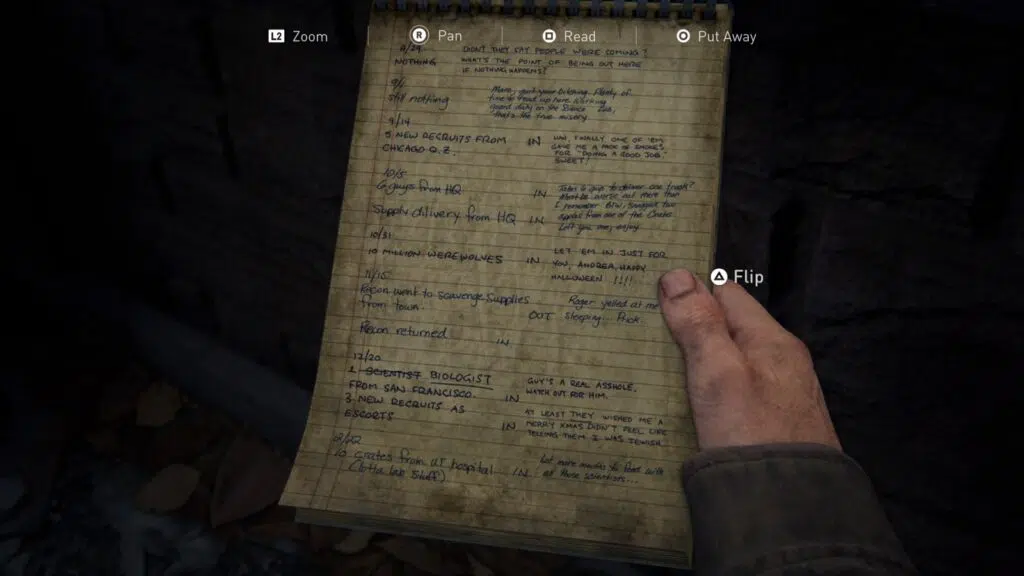 L2 Zoom
R Pan
Read
Put Away
8/29
NOTHING
DIDN'T THEY SAY PEOPLE WERE COMING?
WHAT'S THE POINT OF BEING OUT HERE
IF NOTHING HAPPENS!
9/1
still nothing
Marc, quit your bitching. Plenty of
time to read up here. Working
guard duty in the Science Lab,
that's the true misery
9/14
5 NEW RECRUITS FROM
CHICAGO Q.Z.
IN
WOW, FINALLY ONE OF 'EM
GAVE ME A PACK OF SMOKES
FOR "DOING A GOOD JOB,"
SWEET!
10/5
6 guys from HQ
IN
Takes 6 guys to deliver one
Must be worse out there than
I remember. BTW, snagged two
apples from one of the crates
Left you one, enjoy
Supply dilivery from HQ
IN
10/31
10 MILLION WEREWOLVES
IN
LET 'EM IN JUST FOR
YOU, ANDREA, HAPPY
HALLOWEEN !!!!
Flip
11/15
Recon went to scavenge supplies
from town.
OUT
Roger yelled at me
sleeping. Prick.
Recon returned
IN
12/20
1 SCIENTIST BIOLOGIST
FROM SAN FRANCISCO.
IN
GUY'S A REAL ASSHOLE.
WATCH OUT FOR HIM.
3 NEW RECRUITS AS
ESCORTS
IN
AT LEAST THEY WISHED ME A
MERRY XMAS DIDN'T FEEL LIKE
TELLING THEM I WAS JEWISH.
12/22
10 crates from UT hospital
(lotta lab stuff)
IN
Lot more mouths to feed with
all these scientists...